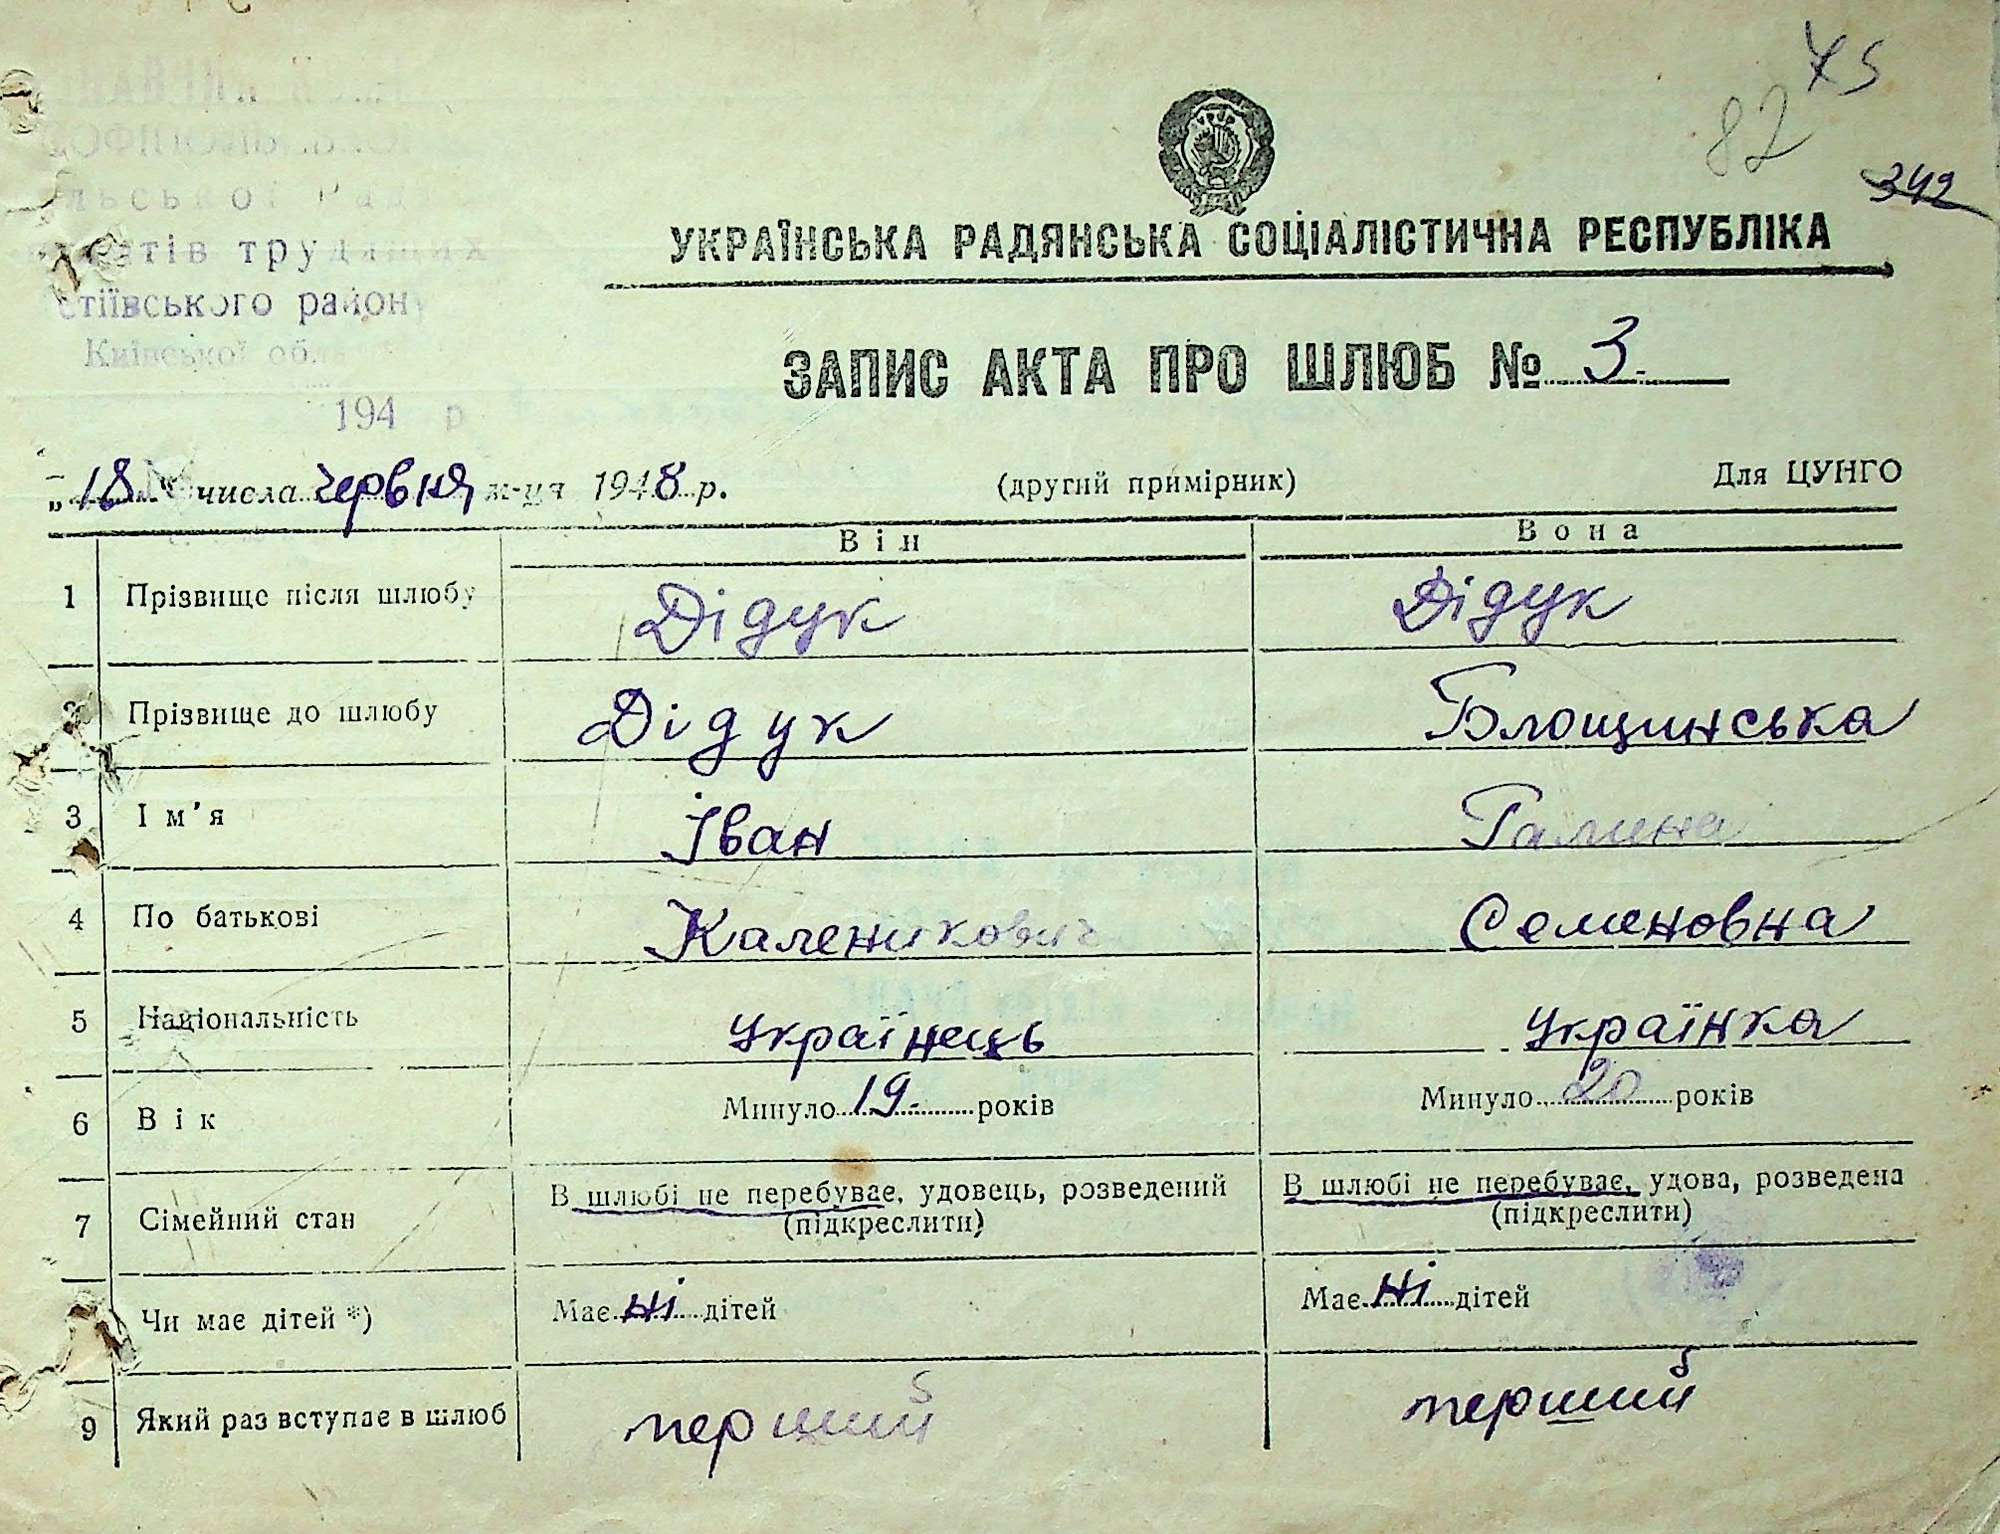 75
82
342
УКРАЇНСЬКА РАДЯНСЬКА СОЦІАЛІСТИЧНА РЕСПУБЛІКА
трудящих
району
Київської
194 р
ЗАПИС АКТА ПРО ШЛЮБ № 3.
„18“ числа червня м-ця 1948 р. (другий примірник) Для ЦУНГО
Він Вона
1 Прізвище після шлюбу Дідук Дідук
2 Прізвище до шлюбу Дідук Блощинська
3 Ім'я Іван Галина
4 По батькові Каленикович Семеновна
5 Національність українець українка
6 Вік Минуло 19. років Минуло 20 років
7 Сімейний стан В шлюбі не перебуває, удовець, розведений (підкреслити) В шлюбі не перебуває, удова, розведена (підкреслити)
Чи має дітей *) Має ні дітей Має ні дітей
9 Який раз вступає в шлюб перший перший